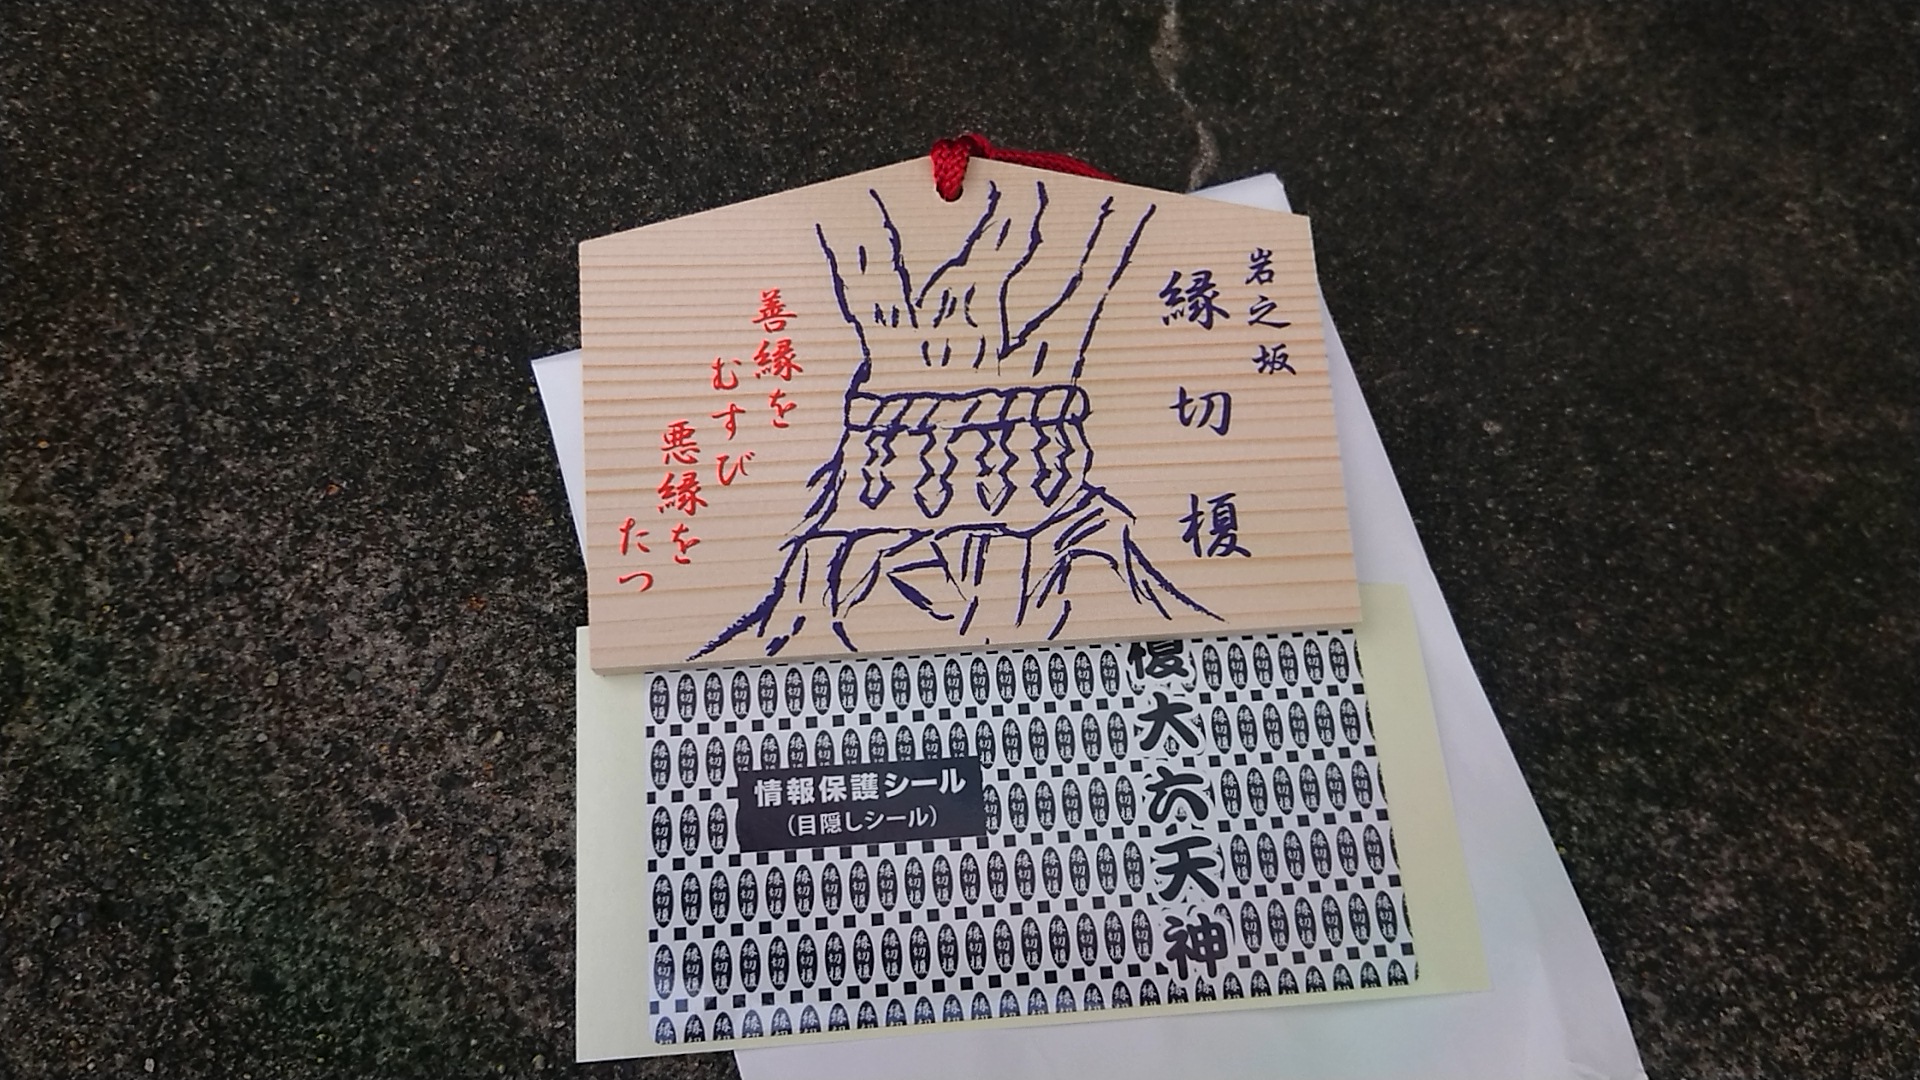 岩之坂
縁切榎
善縁を
むすび
悪縁を
たつ
榎大六天神
情報保護シール
（目隠しシール）
縁切榎